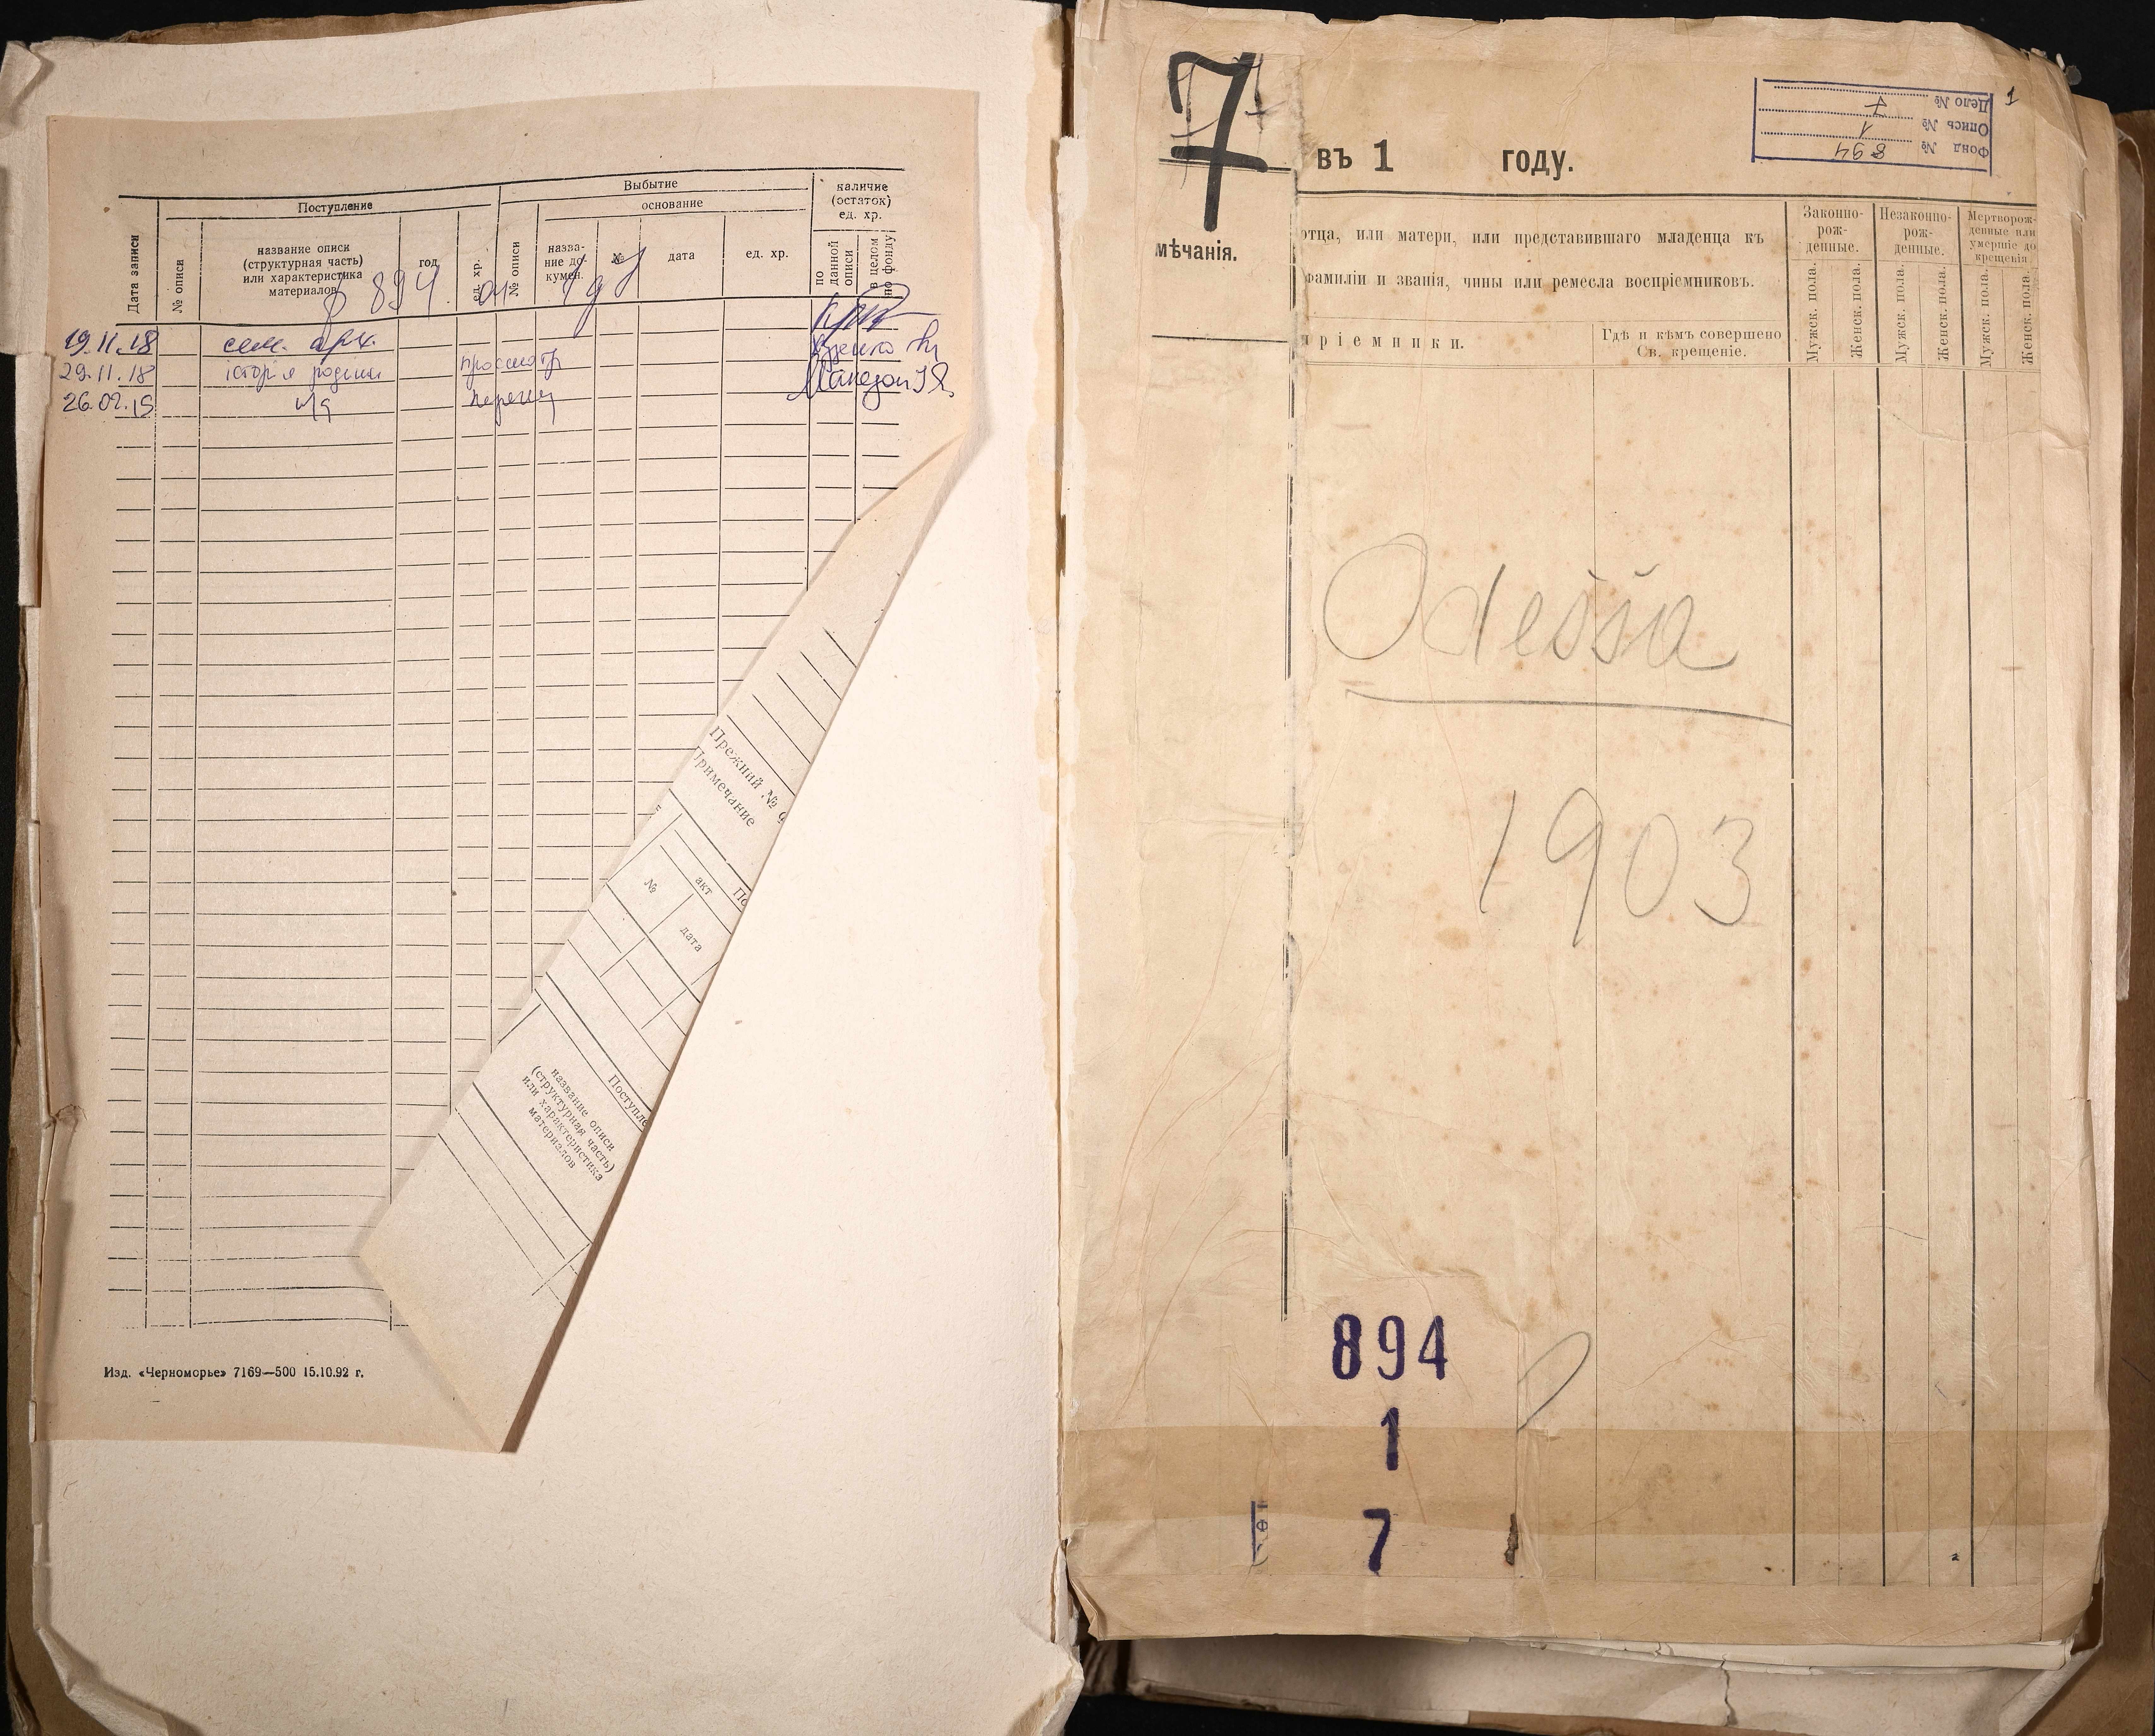 Выбытие
наличие
(остаток)
ед. хр.
Поступление
основание
Дата записи
№ описи
название описи
(структурная часть)
или характеристика
материалов
год
ед. хр.
№ описи
назва-
ние до-
кумен.
№
дата
ед. хр.
по
данной
описи
в целом
по фонду
ф 894 оп 1 д 7
19.11.18 сем. арх.
29.11.18 історія родини просмотр
26.02.19
Прежний №
Примечание
№
акт
дата
название описи
(структурная часть)
или характеристика
материалов
Изд. «Черноморье» 7169—500 15.10.92 г.
7
1
въ 1 году.
Фонд № 894
Опись № 1
Дело № 7
мѣчанія.
отца, или матери, или представившаго младенца къ
фамиліи и званія, чины или ремесла воспріемниковъ.
пріемники.
Гдѣ и кѣмъ совершено
Св. крещеніе.
Законно-
рож-
денные.
Незаконно-
рож-
денные.
Мертворож-
денные или
умершіе до
крещенія
Мужск. пола.
Женск. пола.
Мужск. пола.
Женск. пола.
Мужск. пола.
Женск. пола.
Odešša
1903
894
1
7